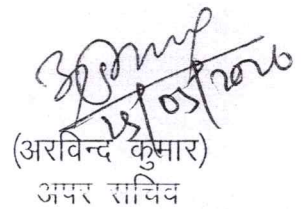 25/05/2020
(अरविन्द कुमार)
अपर सचिव